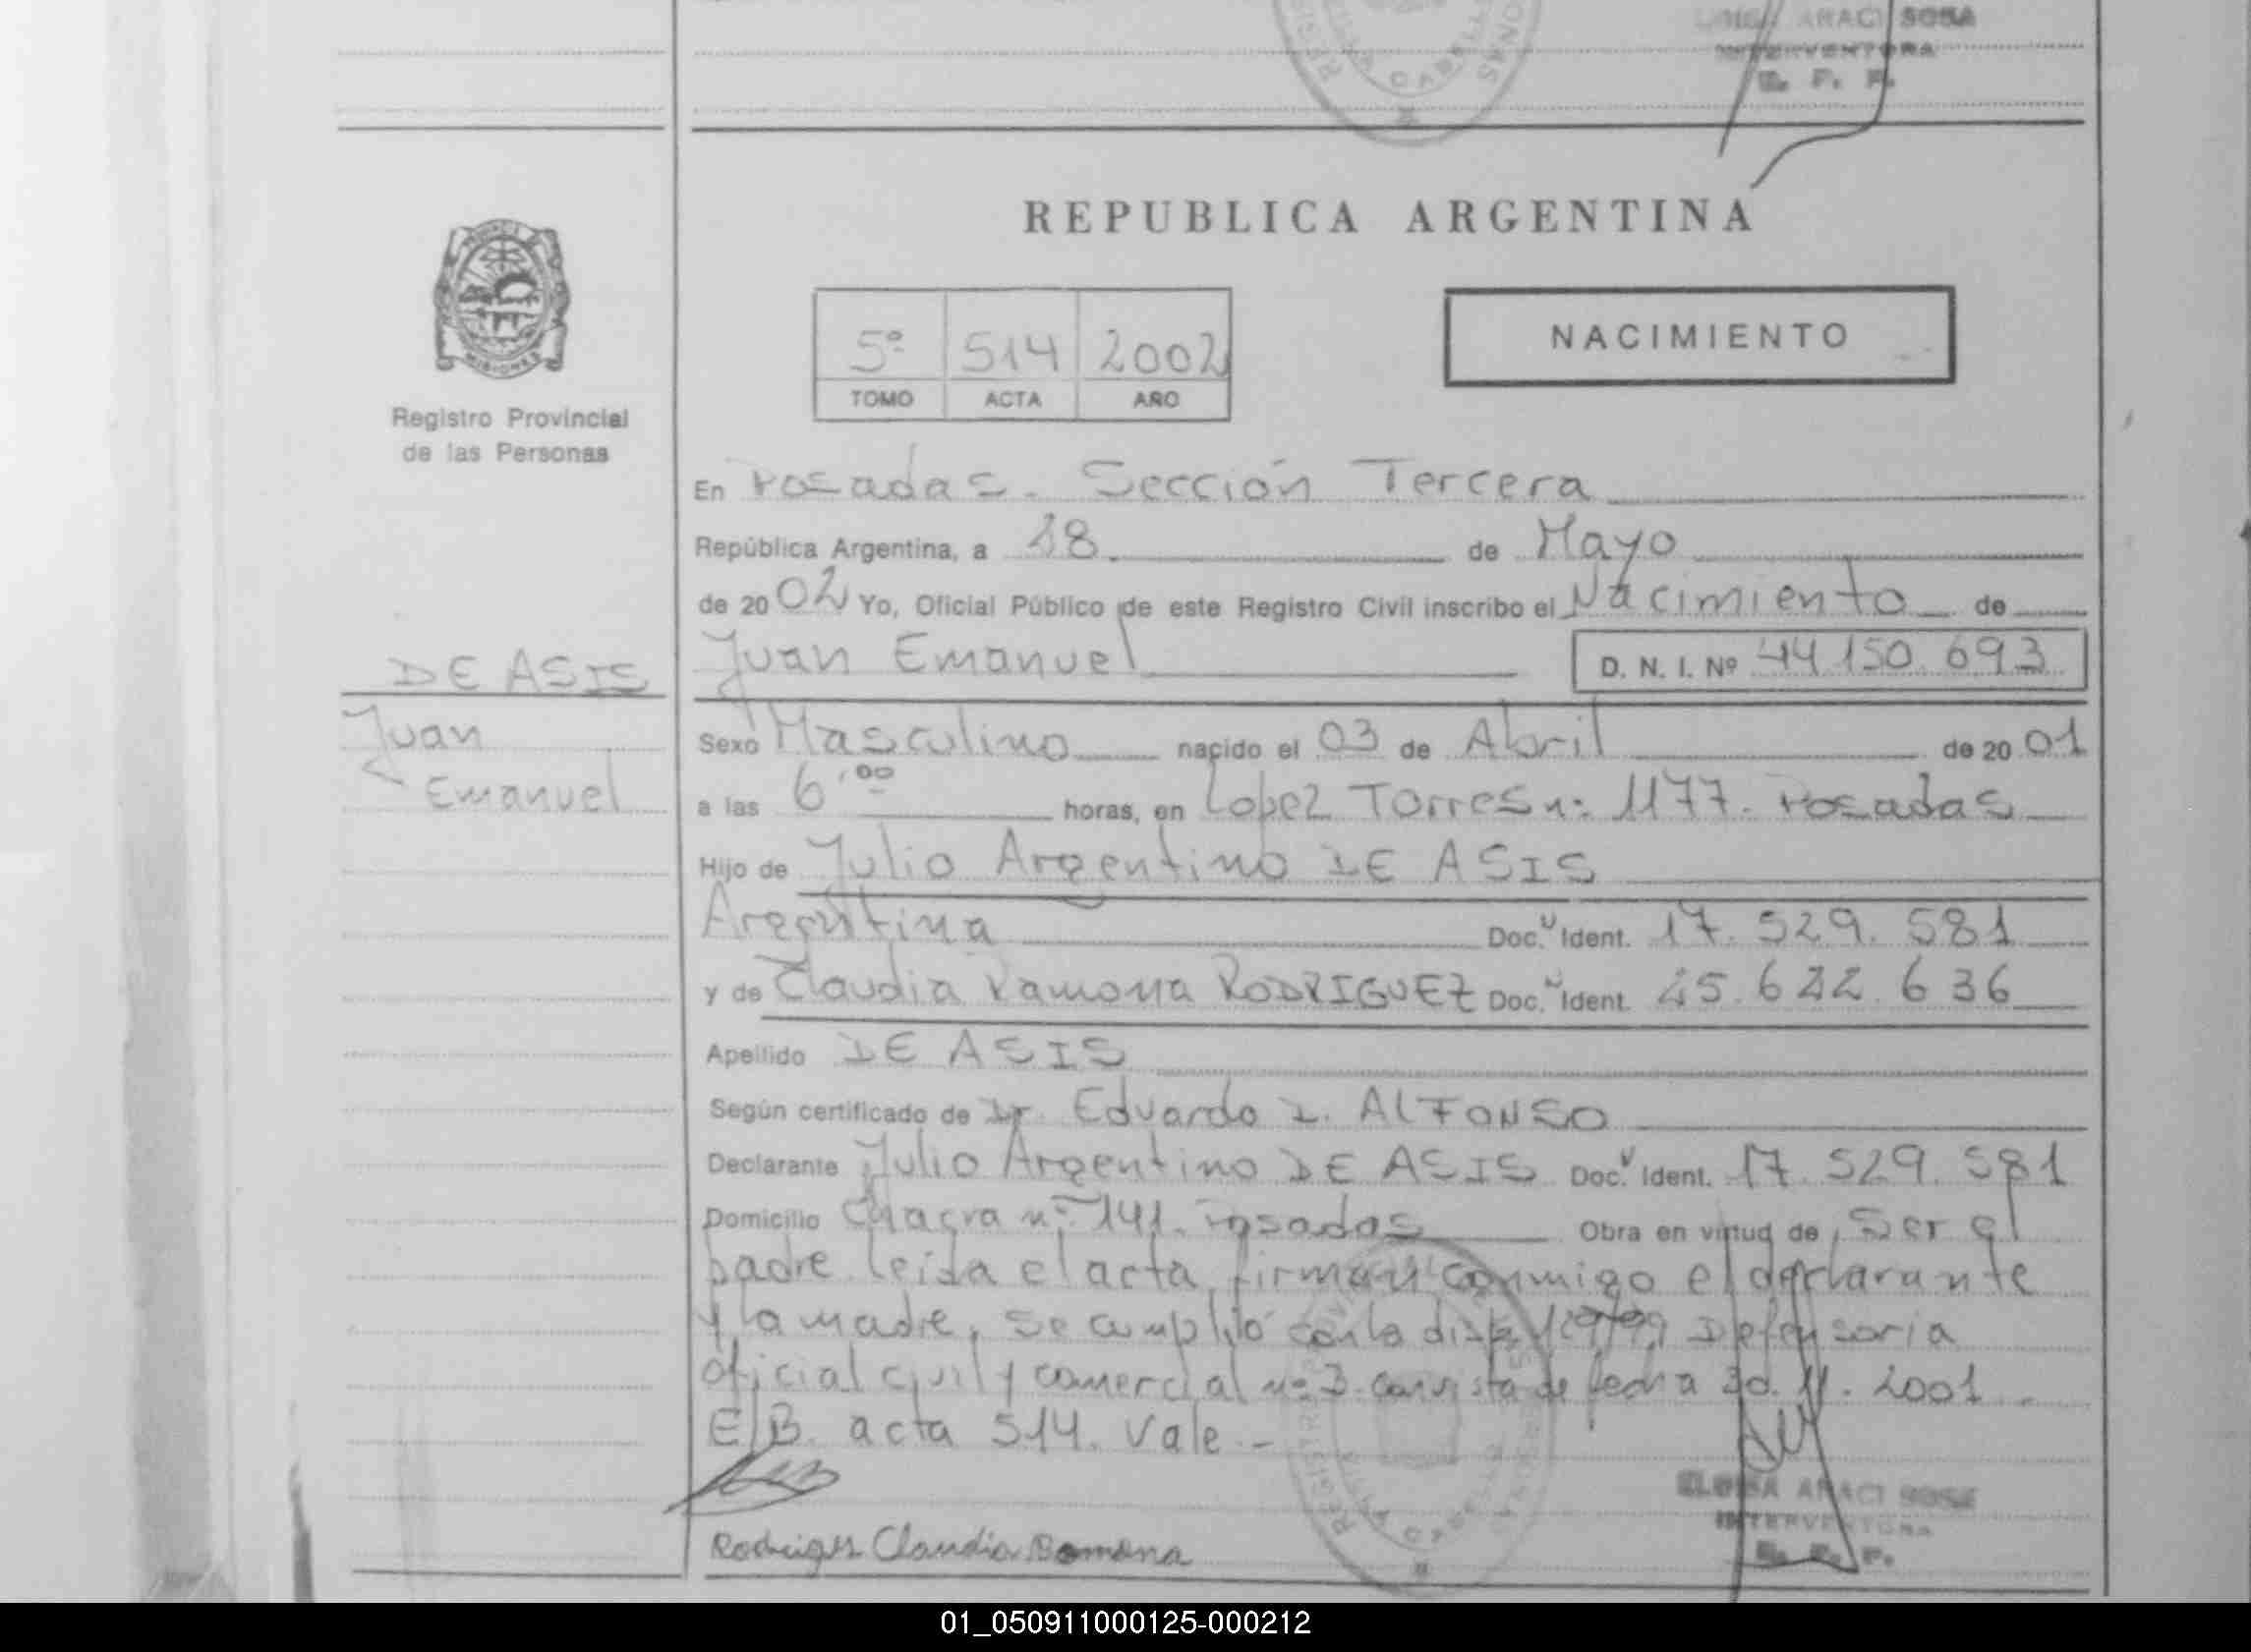 ARACI SOSA
INTERVENTORA
E. F. P.
REPUBLICA ARGENTINA
5º 514 2002
TOMO ACTA AÑO
NACIMIENTO
MISIONES
Registro Provincial
de las Personas
En Posadas. Sección Tercera
República Argentina, a 28 de Mayo
de 2002 Yo, Oficial Público de este Registro Civil inscribo el Nacimiento de
DE ASIS
Juan Emanuel D. N. I. Nº 44.150.693
Juan
Emanuel
Sexo Masculino nacido el 03 de Abril de 2001
a las 6,00 horas, en Lopez Torres nº 1177. Posadas
Hijo de Julio Argentino DE ASIS
Argentina Doc. Ident. 17.529.581
y de Claudia Ramona RODRIGUEZ Doc. Ident. 25.622.636
Apellido DE ASIS
Según certificado de Dr. Eduardo ALFONSO
Declarante Julio Argentino DE ASIS Doc. Ident. 17.529.581
Domicilio Chacra nº 141. Posadas Obra en virtud de ser el
padre. leida el acta, firman conmigo el declarante
y la madre, se cumplió con la Defensoria
oficial civil y comercial nº 3. con vista de fecha 30.11.2001
E/B. acta 514. Vale.-
ELOISA ARACI SOSA
INTERVENTORA
Claudia Romona
01_050911000125-000212